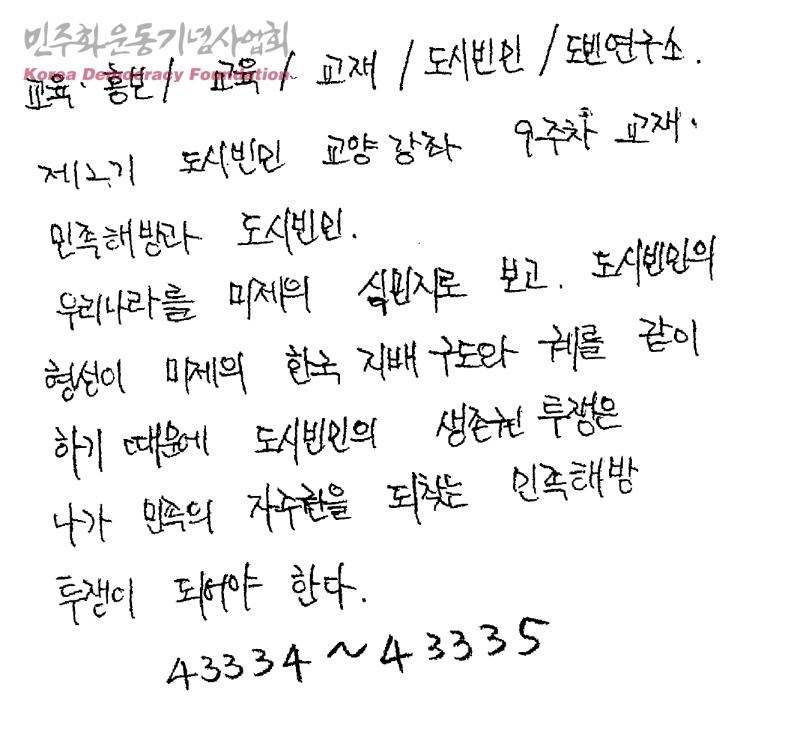 민주화운동기념사업회
Korea Democracy Foundation
교육·홍보 / 교육 / 교재 / 도시빈민 / 도빈연구소.
제2기 도시빈민 교양강좌 9주차 교재.
민족해방과 도시빈민.
우리나라를 미제의 식민지로 보고. 도시빈민의
형성이 미제의 한국 지배 구도와 궤를 같이
하기 때문에 도시빈민의 생존권 투쟁은
나가 민족의 자주권을 되찾는 민족해방
투쟁이 되어야 한다.
43334 ~ 43335